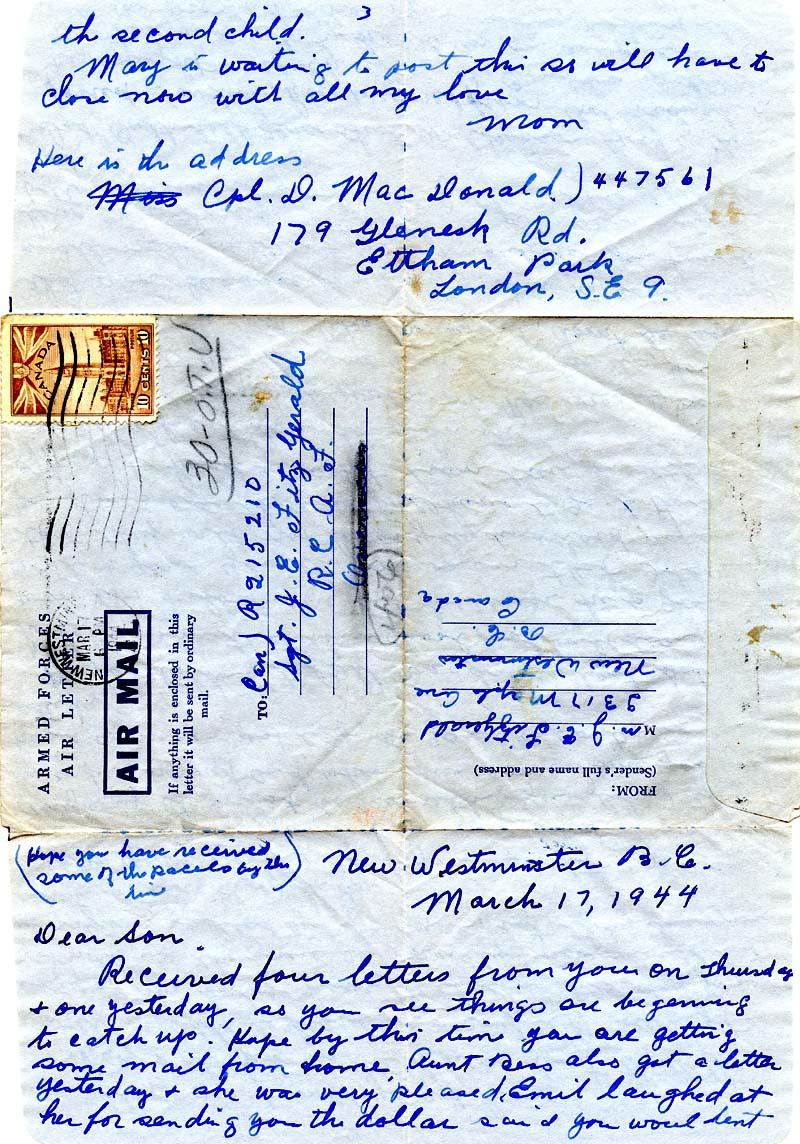 3
th second child.
Mary is waiting to post this so will have to
close now with all my love
Mom
Here is the address
Miss Cpl. D. MacDonald) 447561
179 Glenesk Rd.
Eltham Park
London, S.E 9.
CANADA
10 CENTS 10
30-O.T.U
ARMED FORCES
AIR LETTER
NEW WESTMIN
MAR 17
AIR MAIL
If anything is enclosed in this
letter it will be sent by ordinary
mail.
TO: Can) R 215210
Sgt. J. E. Fitz Gerald
R. C. A. F.
FROM:
(Sender's full name and address)
M J. E. Fitzgerald
2317 Maple Ave
New Westminster
B. C.
Canada
(Hope you have received
some of the parcels by this
time)
New Westminster B. C.
March 17, 1944
Dear Son,
Received four letters from you on thursday
& one yesterday, so you see things are beginning
to catch up. Hope by this time you are getting
some mail from home. Aunt Bess also got a letter
yesterday & she was very pleased. Emil laughed at
her for sending you the dollar said you would